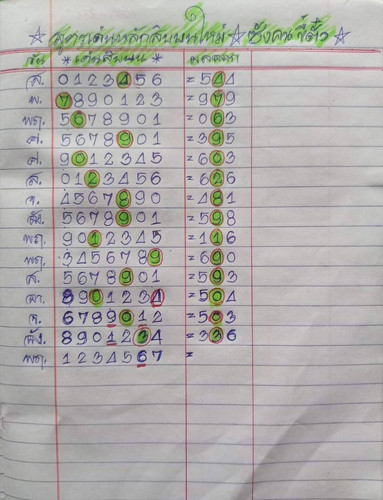 ๑
☆ สูตรเด่นหลักสิบบนใหม่ ☆ ☆
วัน * เด่นสิบบน * ผลออก
ส. 0123456 = 544
พ. 7890123 = 979
พฤ. 5678901 = 063
ศ. 5678901 = 395
ศ. 9012345 = 603
ส. 0123456 = 626
จ. 4567890 = 481
5678901 = 598
พฤ. 9012345 = 116
พฤ. 3456789 = 690
ส. 5678901 = 593
8901234 = 504
จ. 6789012 = 503
อัง. 8901234 = 336
พฤ. 1234567 =